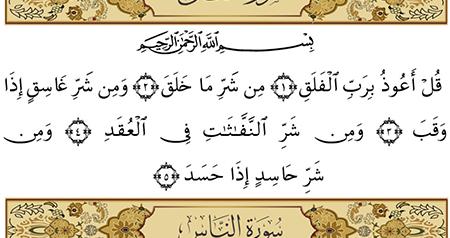 بِسْمِ اللَّهِ الرَّحْمَٰنِ الرَّحِيمِ
قُلْ أَعُوذُ بِرَبِّ الْفَلَقِ ﴿١﴾ مِن شَرِّ مَا خَلَقَ ﴿٢﴾ وَمِن شَرِّ غَاسِقٍ إِذَا
وَقَبَ ﴿٣﴾ وَمِن شَرِّ النَّفَّاثَاتِ فِي الْعُقَدِ ﴿٤﴾ وَمِن
شَرِّ حَاسِدٍ إِذَا حَسَدَ ﴿٥﴾
سُورَةُ النَّاسِ